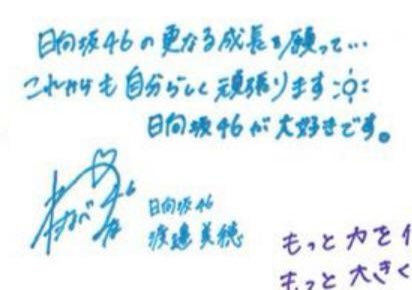 日向坂46の更なる成長を願って…
これからも自分らしく頑張ります
日向坂46が大好きです。
日向坂46
渡邉美穂
もっと力を
もっと大きく